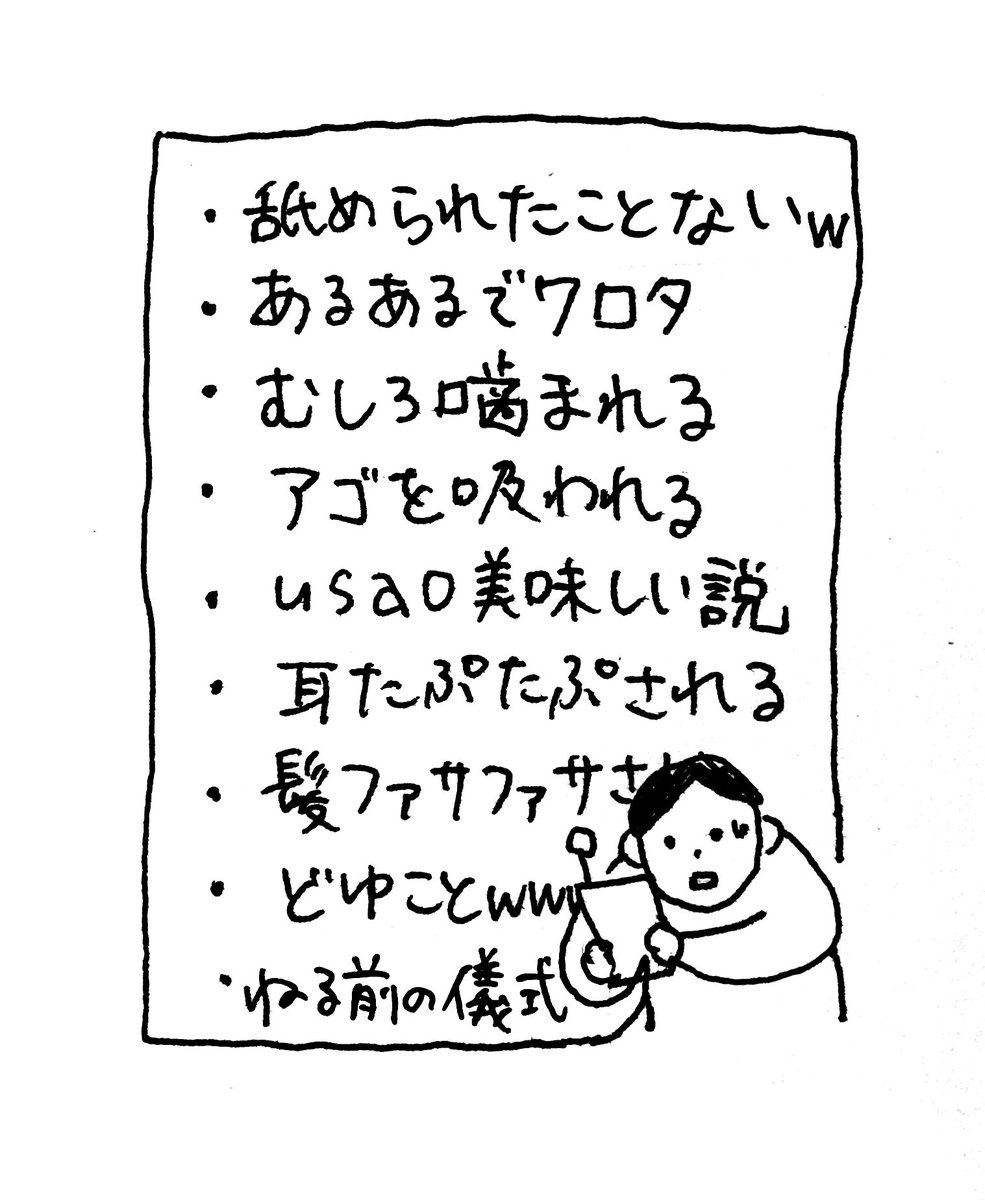 ・舐められたことないw
・あるあるでワロタ
・むしろ噛まれる
・アゴを吸われる
・usao美味しい説
・耳たぷたぷされる
・髪ファサファサさ
・どゆことwww
・ねる前の儀式